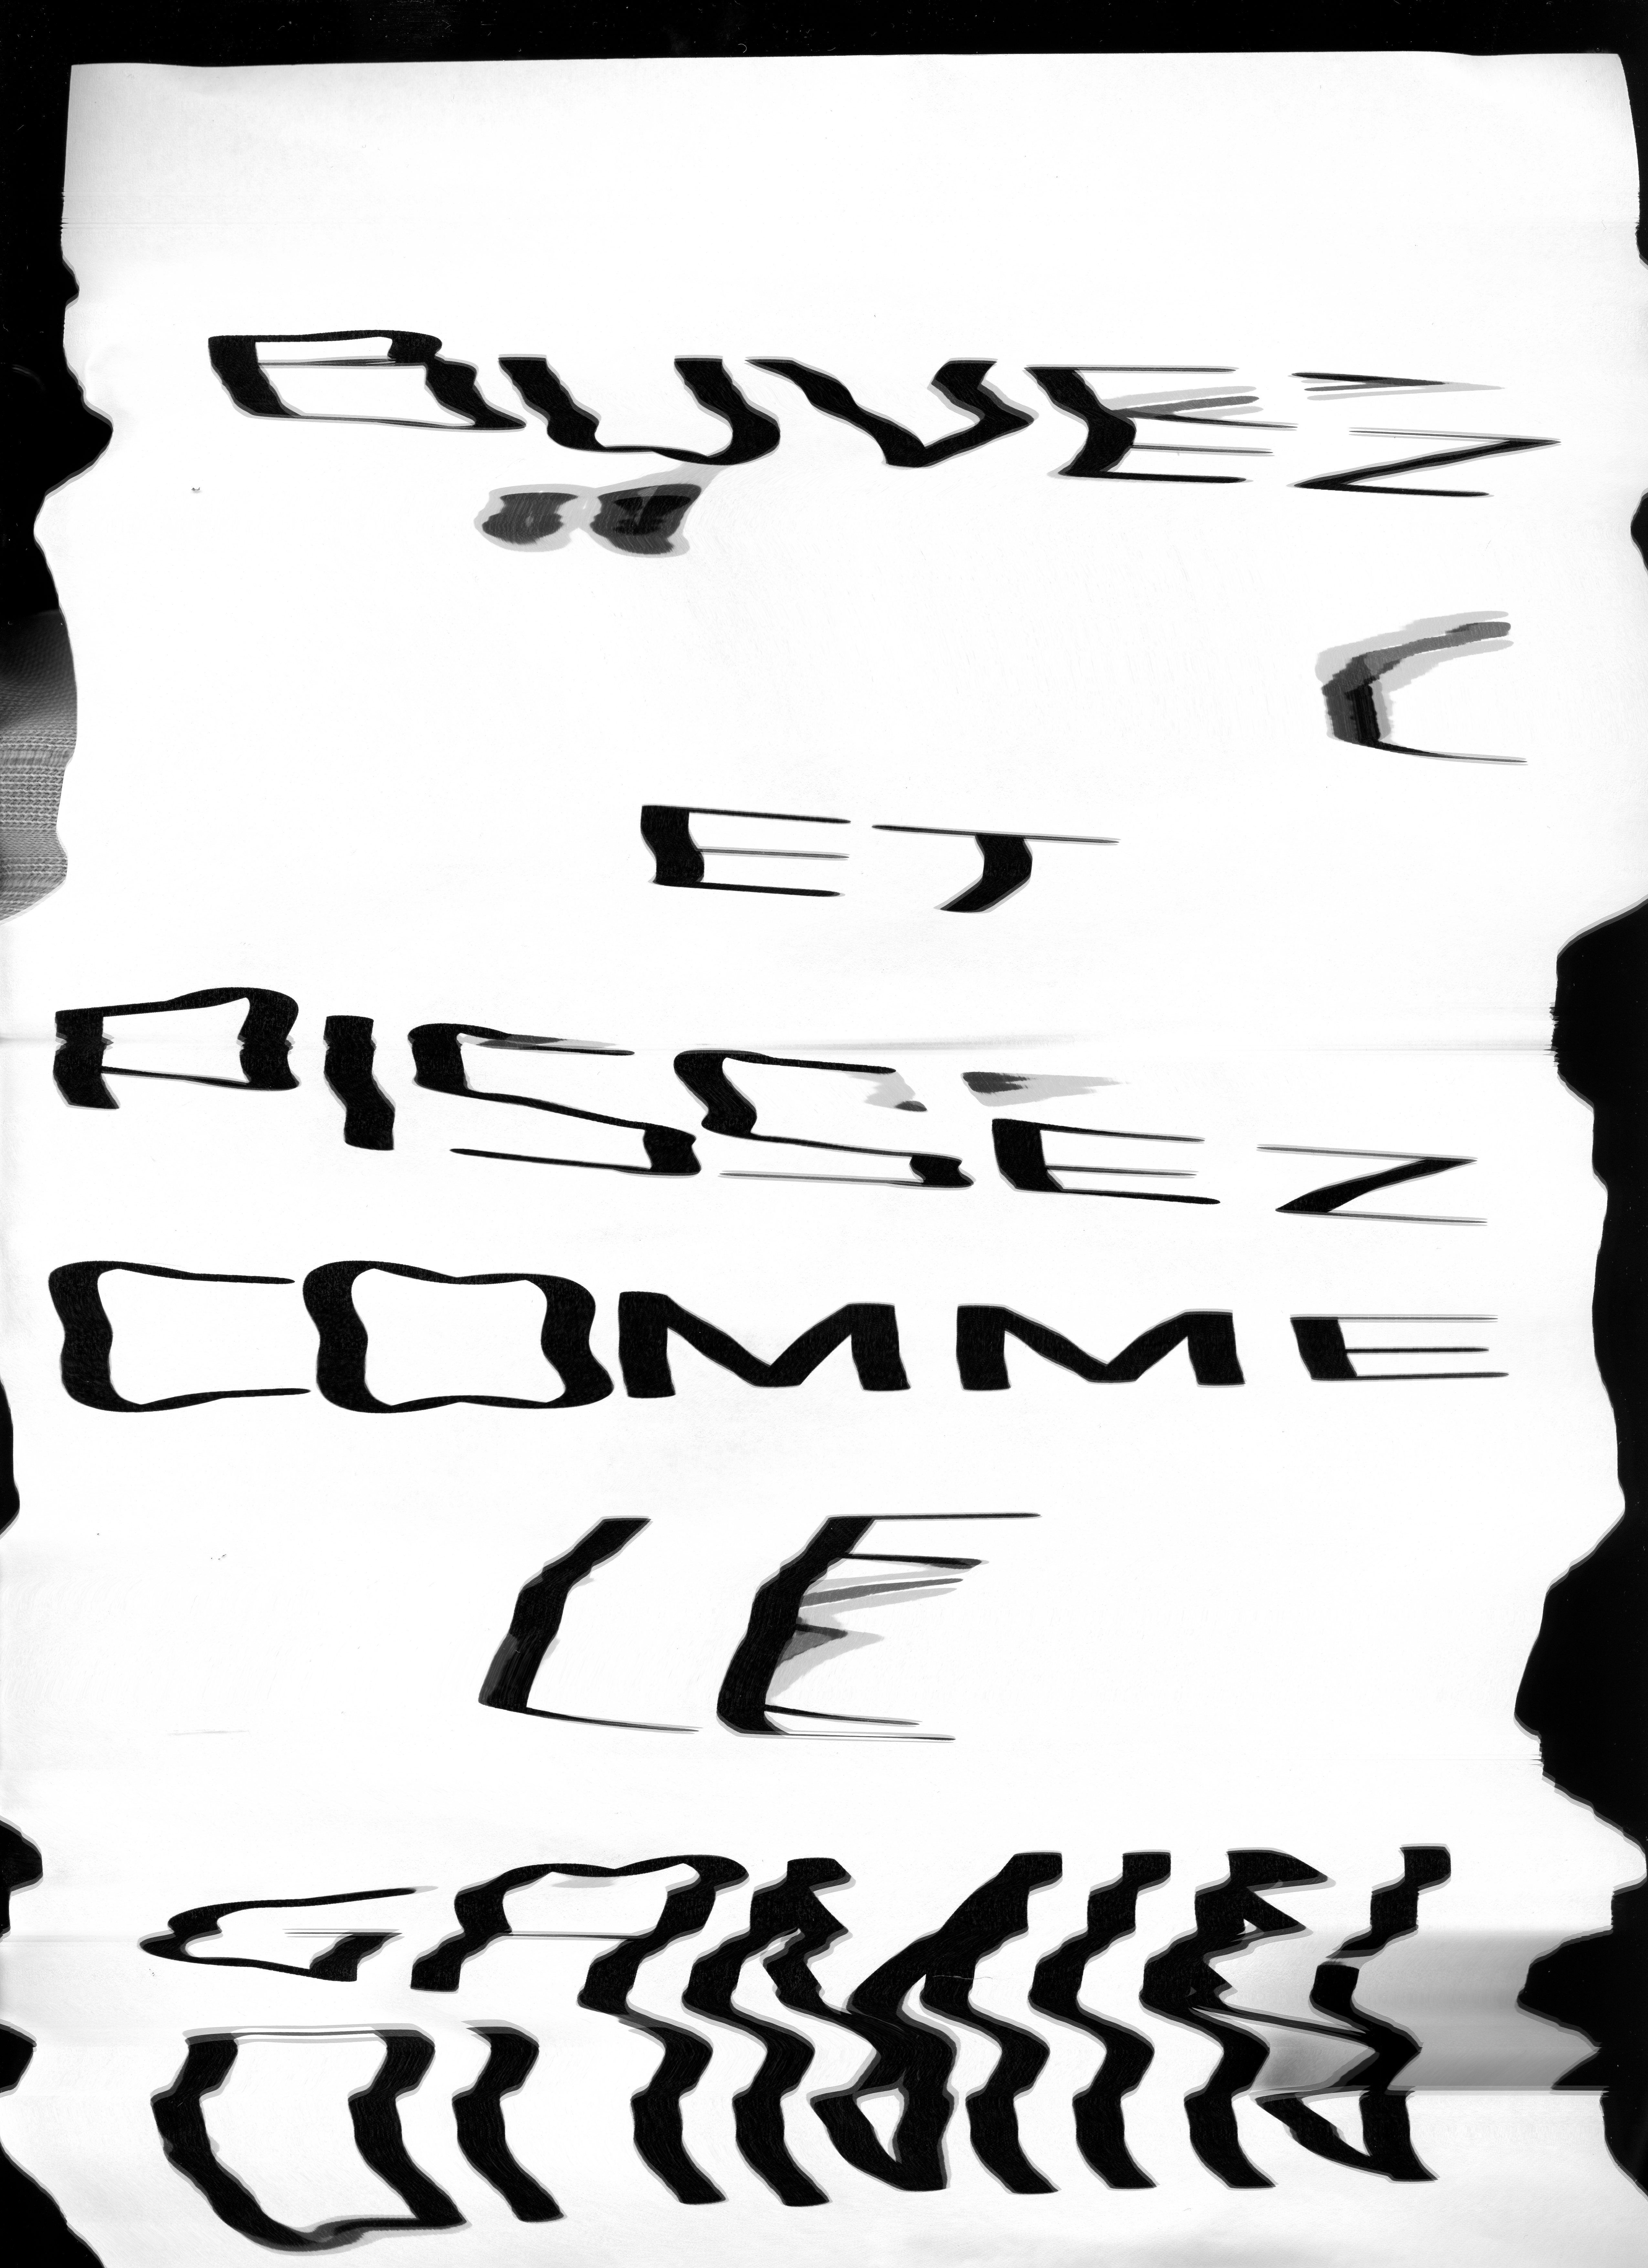 BUVEZ
C
ET
PISSEZ
COMME
LE
GAMIN